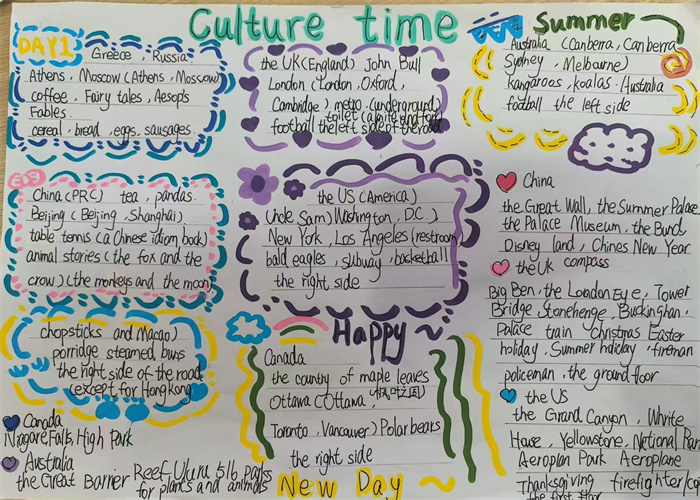 Culture time
Summer
DAY1
Greece, Russia
Athens, Moscow (Athens, Moscow)
coffee, Fairy tales, Aesop's
Fables.
cereal, bread, eggs, sausages
the UK(England) John Bull
London (London, Oxford,
Cambridge) metro (underground)
toilet (a knife and fork)
football the left side of the road
Australia (Canberra, Canberra
Sydney, Melbourne)
Kangaroos, koalas Australia
football the left side
China (PRC) tea, pandas.
Beijing (Beijing, Shanghai)
table tennis (a Chinese idiom book)
animal stories (the fox and the
crow) (the monkeys and the moon)
chopsticks and Macao)
porridge steamed buns
the right side of the road
(except for Hong Kong
the US (America)
Uncle Sam) Washington, DC.),
New York, Los Angeles (restroom)
bald eagles, subway, basketball
the right side
Happy
Canada
the country of maple leaves
Ottawa (Ottawa, 枫叶之国)
Toronto, Vancouver) Polar bears
the right side
New Day
China
the Great Wall, the Summer Palace
the Palace Museum, the Bund
Disney land, Chines New Year
compass
the UK
Big Ben, the London Eye, Tower
Bridge Stonehenge, Buckinghan,
Palace train Christmas Easter
holiday, Summer holiday, fireman
policeman, the ground floor
the US
the Grand Canyon, Whrite
House, Yellowstone, National Park
Aeroplan Park Aeroplane
Thanksgiving firefighter
the first floor
Canada
Niagare Falls, High Park
Australia
the Great Barrier Reef Uluru 516 parks
for plants and animals